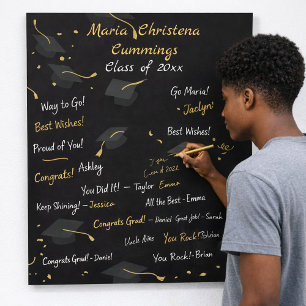 Maria Christena
Cummings
Class of 20xx
Way to Go!
Go Maria!
Best Wishes!
Jaclyn!
Proud of You!
Best Wishes!
Congrats!
Ashley
You Did It! - Taylor
Emma
Keep Shining! - Jessica
All the Best - Emma
Congrats Grad! - Daniel
Great Job! - Sarah
Uncle
You Rock!
Congrats Grad! - Daniel
You Rock! - Brian